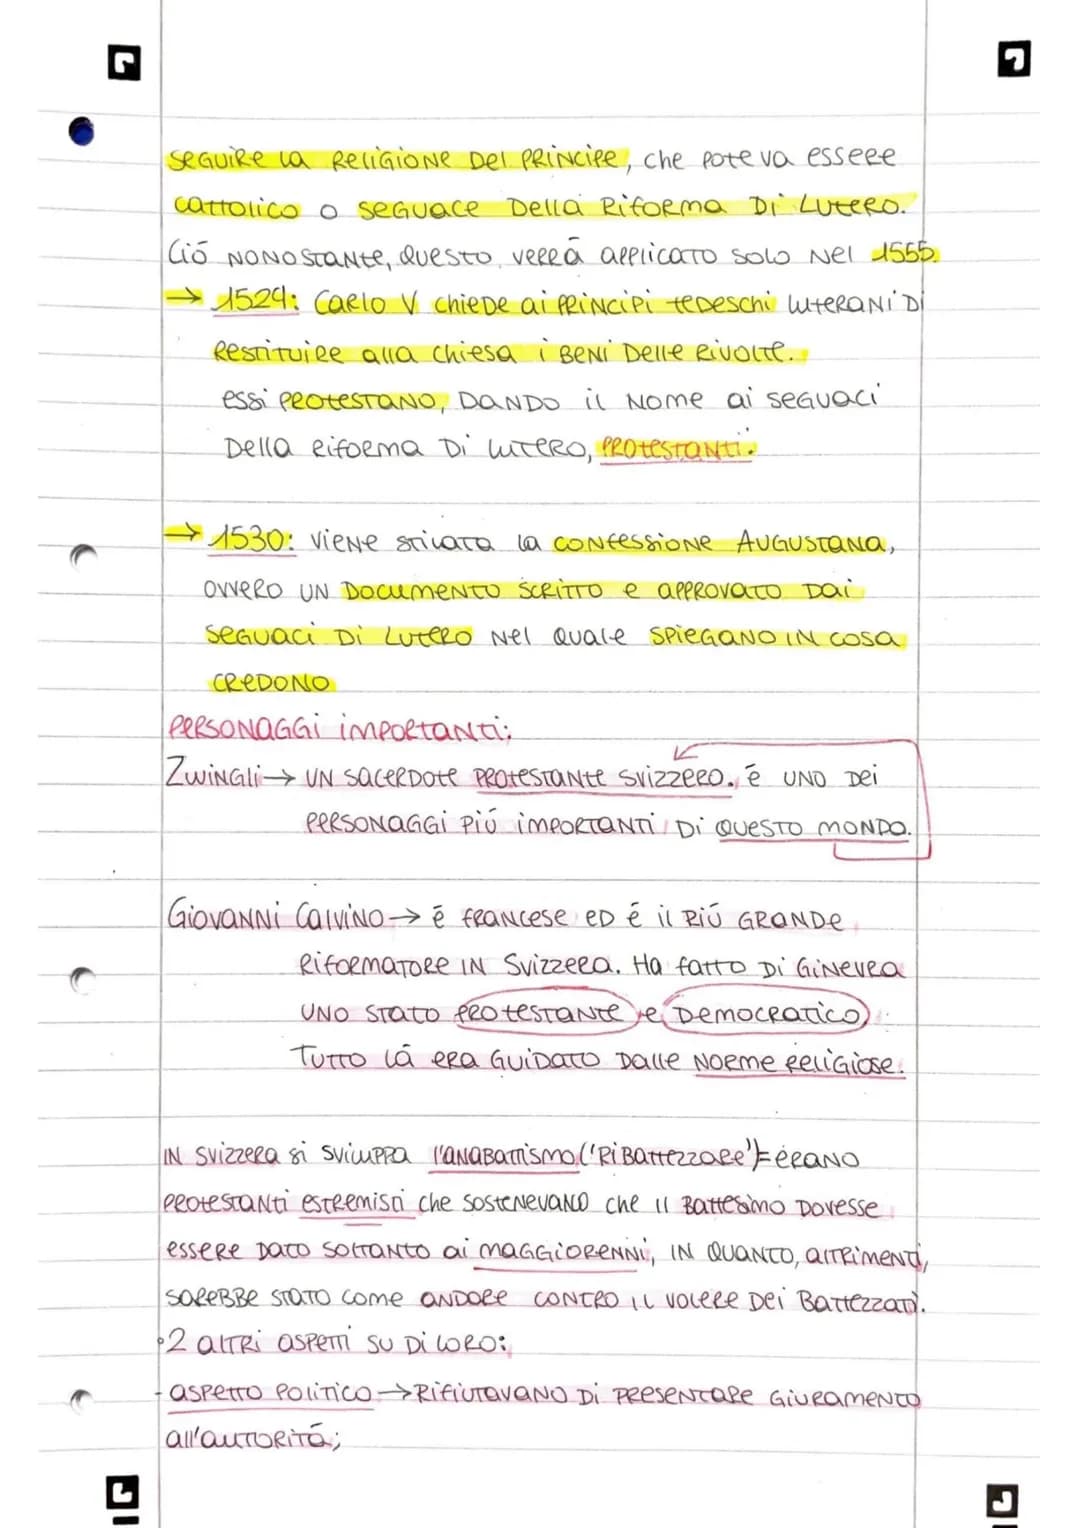 seguire la religione del principe, che poteva essere
cattolico o seguace della riforma di Lutero.
Ció nonostante, questo verrá applicato solo nel 1555.
→ 1529: Carlo V chiede ai principi tedeschi luterani di
restituire alla chiesa i beni delle rivolte.
essi protestano, dando il nome ai seguaci
della riforma di Lutero, protestanti.
→ 1530: viene stilata la confessione augustana,
ovvero un documento scritto e approvato dai
seguaci di Lutero nel quale spiegano in cosa
credono
personaggi importanti:
Zwingli → un sacerdote protestante svizzero. é uno dei
personaggi piú importanti di questo mondo.
Giovanni Calvino → é francese ed é il piú grande
riformatore in Svizzera. Ha fatto di Ginevra
uno stato protestante e democratico.
Tutto lá era guidato dalle norme religiose.
In Svizzera si sviluppa l'anabattismo ('ribattezzare') = erano
protestanti estremisti che sostenevano che il battesimo dovesse
essere dato soltanto ai maggiorenni, in quanto, altrimenti,
sarebbe stato come andare contro il volere dei battezzati.
•2 altri aspetti su di loro:
- aspetto politico → rifiutavano di presentare giuramento
all'autoritá;